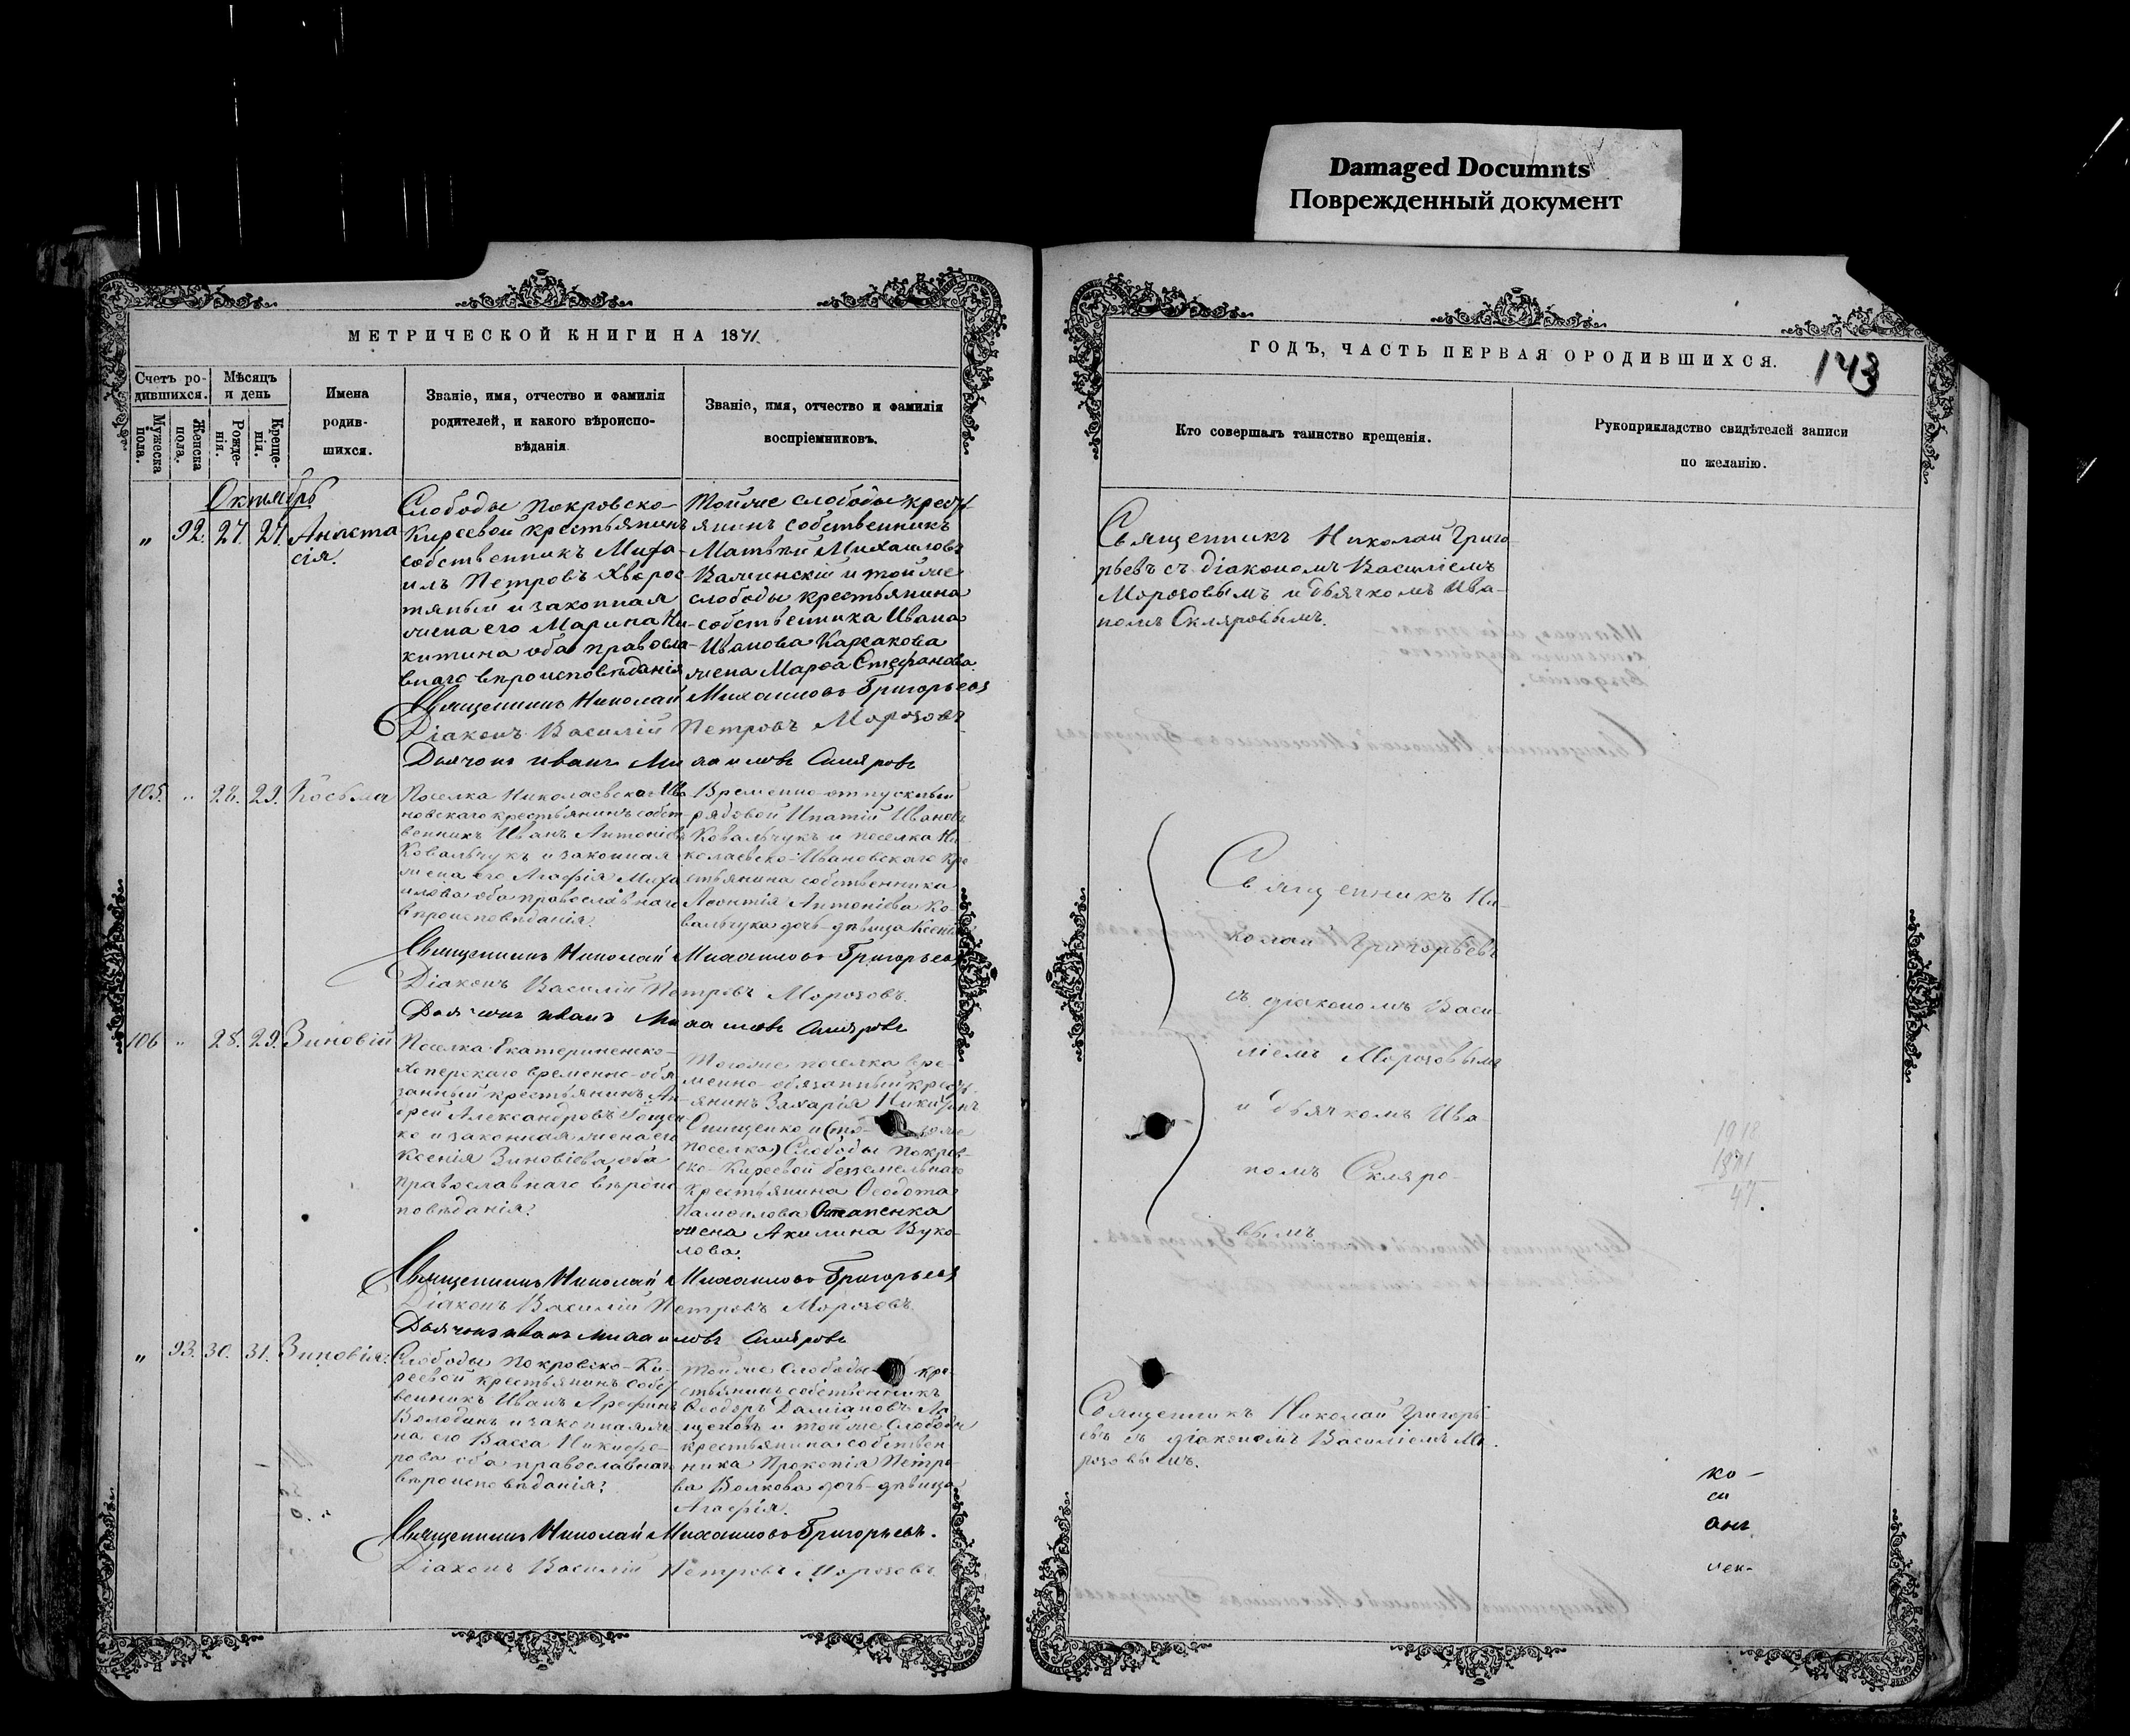 Damaged Documnts
Поврежденный документ
МЕТРИЧЕСКОЙ КНИГИ НА 1871.
Счетъ ро-
дившихся.
Мѣсяцъ
и день
Мужеска
пола.
Женска
пола.
Рожде-
нія.
Креще-
нія.
Имена
родив-
шихся.
Званіе, имя, отчество и фамилія
родителей, и какого вѣроиспо-
вѣданія
Званіе, имя, отчество и фамилія
воспріемниковъ.
Октябрь
„ 92. 27. 27. Анаста-
сія.
Слободы Покровско-
Киреевой крестьянинъ
собственникъ Миха-
илъ Петровъ Хворос-
тяный и законная
жена его Марина Ни-
китина оба правосла-
внаго вѣроисповѣданія
Тойже слободы крест-
янинъ собственникъ
Матвѣй Михаиловъ
и тойже
слободы крестьянина
собственника Ивана
Иванова
жена Марѳа Стефанова
Священникъ Николай Михаиловъ Григорьевъ
Діаконъ Василій Петровъ Морозовъ
Дьячокъ Иванъ Михаиловъ Скляровъ
105. „ 28. 29. Косьма
Поселка Николаевско-Ива-
новскаго крестьянинъ собст-
венникъ Иванъ Антоніевъ
Ковальчукъ и законная
жена его Агафія Миха-
илова оба православнаго
вѣроисповѣданія.
Временно-отпускной
рядовой Ипатій Ивановъ
Ковальчукъ и поселка Ни-
колаевско-Ивановскаго кре-
стьянина собственника
Леонтія Антоніева Ко-
вальчука дочь-дѣвица Ксенія
Священникъ Николай Михаиловъ Григорьевъ
Діаконъ Василій Петровъ Морозовъ.
Дьячокъ Иванъ Михаиловъ Скляровъ
106 „ 28. 29. Зиновій
Поселка Екатериненско-
Хоперскаго временно-обя-
занный крестьянинъ Ан-
дрей Александровъ
и законная жена его
Ксенія Зиновіева, оба
православнаго вѣроис-
повѣданія.
Тогоже поселка вре-
менно-обязанный крест-
янинъ Захарія Никитинъ
Онищенко и
поселка) Слободы Покров-
ско-Киреевой безземельнаго
крестьянина Ѳеодота
Остапенка
жена Акилина Вуко-
лова.
Священникъ Николай Михаиловъ Григорьевъ
Діаконъ Василій Петровъ Морозовъ
Дьячокъ Иванъ Михаиловъ Скляровъ
„ 93. 30. 31. Зиновія.
Слободы Покровско-Ки-
реевой крестьянинъ собст-
венникъ Иванъ Арефинъ
Володинъ и законная же-
на его Васса Никифо-
рова оба православнаго
вѣроисповѣданія.
Тойже Слободы кре-
стьянинъ собственникъ
Ѳеодоръ Даміановъ
и тойже Слободы
крестьянина собствен-
ника Прокопія Петро-
ва Волкова дочь-дѣвица
Агафія.
Священникъ Николай Михаиловъ Григорьевъ.
Діаконъ Василій Петровъ Морозовъ
ГОДЪ, ЧАСТЬ ПЕРВАЯ О РОДИВШИХСЯ.
143
Кто совершалъ таинство крещенія.
Рукоприкладство свидѣтелей записи
по желанію.
Священникъ Николай Григо-
рьевъ съ діакономъ Василіемъ
Морозовымъ и дьячкомъ Ива-
номъ Скляровымъ.
Священникъ Ни-
колай Григорьевъ
съ діакономъ Васи-
ліемъ Морозовымъ
и дьячкомъ Ива-
номъ Скляро-
вымъ
1918
1871
47.
Священникъ Николай Григорь-
евъ съ діакономъ Василіемъ Мо-
розовымъ.
ко-